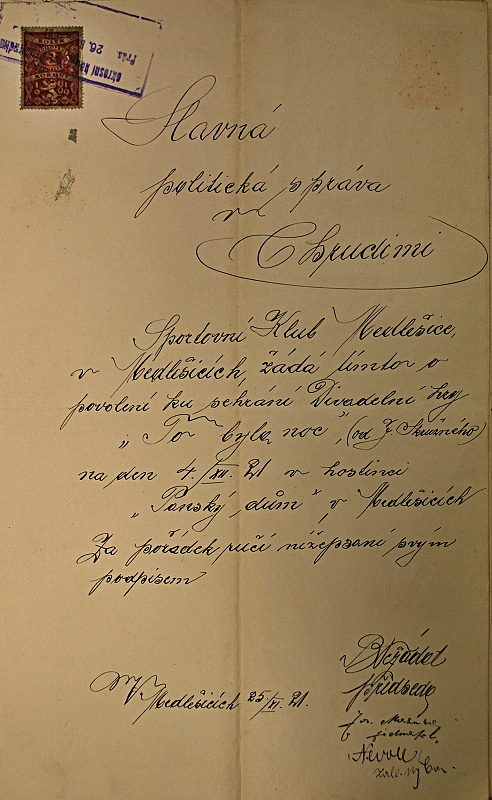 KOLEK
KORUNY
Slavná
politická správa
v
Chrudimi
Sportovní Klub Medlešice,
v Medlešicích, žádá tímto o
povolení ku sehrání Divadelní hry
„To byla noc", (od J. Skružného)
na den 4./XII. 21 v hostinci
„Panský dům" v Medlešicích
Za pořádek ručí nížepsaní svým
podpisem
V Medlešicích 25/XI. 21.
předseda
jednatel